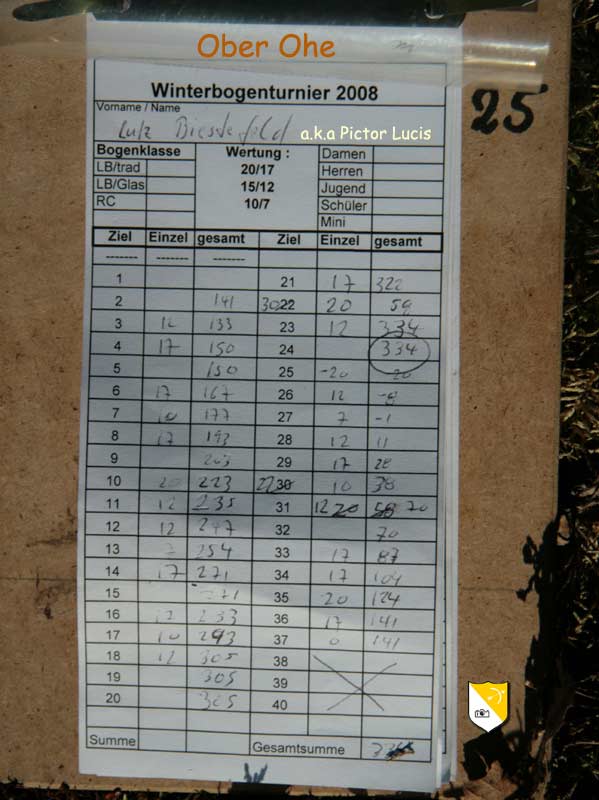 Ober Ohe
Winterbogenturnier 2008
25
Vorname / Name
Lutz a.k.a Pictor Lucis
Bogenklasse Wertung : Damen
LB/trad 20/17 Herren
LB/Glas 15/12 Jugend
RC 10/7 Schüler
Mini
Ziel Einzel gesamt Ziel Einzel gesamt
------- ------- -------
1 21 17 322
2 141 22 20 59
3 12 133 23 12 334
4 17 150 24 334
5 150 25 -20 -20
6 17 167 26 12 -8
7 10 177 27 7 -1
8 17 193 28 12 11
9 203 29 17 28
10 20 223 30 10 38
11 12 235 31 12 20 58 70
12 12 247 32 70
13 7 254 33 17 87
14 17 271 34 17 104
15 271 35 20 124
16 12 36 17 141
17 10 293 37 0 141
18 12 305 38
19 305 39
20 305 40
Summe Gesamtsumme